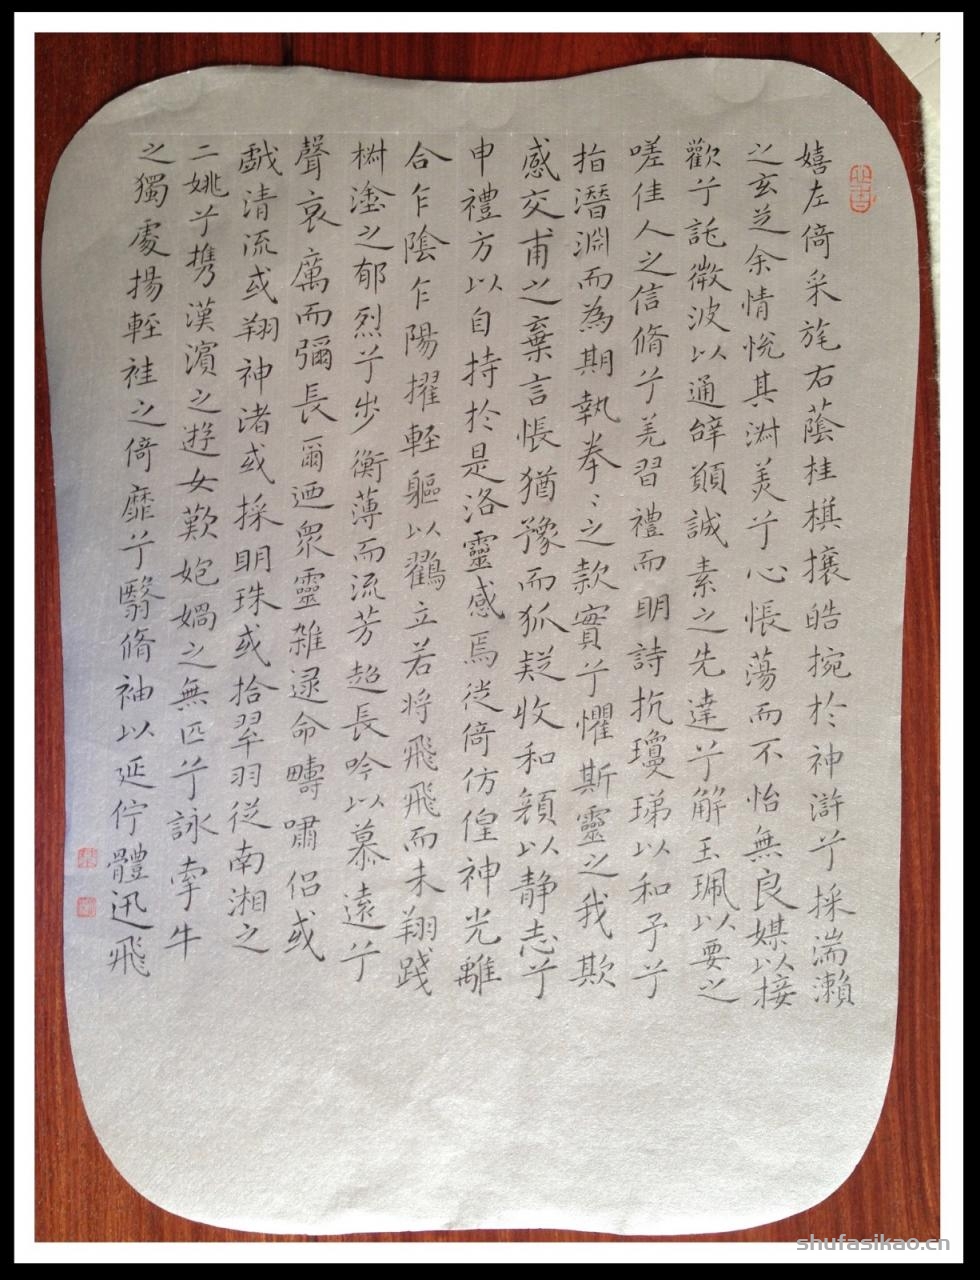 嬉左倚采旄右蔭桂棋攘皓捥於神滸兮採湍濑
之玄芝余情悅其淑羙兮心悵蕩而不怡無良媒以接
歡兮託微波以通辝顚誠素之先達兮解玉珮以要之
嗟佳人之信脩兮羌習禮而明詩抗瓊珶以和予兮
指潛淵而為期執拳〻之款實兮懼斯靈之我欺
感交甫之棄言悵猶豫而狐疑收和顏以静志兮
申禮方以自持於是洛靈感焉徙倚仿偟神光離
合乍陰乍陽擢軽軀以鸛立若将飛飛而未翔踐
樹塗之郁烈兮步衡薄而流芳超長吟以慕遠兮
聲哀厲而彌長爾迺衆靈雜逯命疇嘯侣或
戲清流或翔神渚或採明珠或拾翠羽從南湘之
二姚兮攜漢濱之遊女歎媹媧之無匹兮詠牽牛
之獨處揚軽袿之倚靡兮翳脩袖以延佇體迅飛
shufasikao.cn